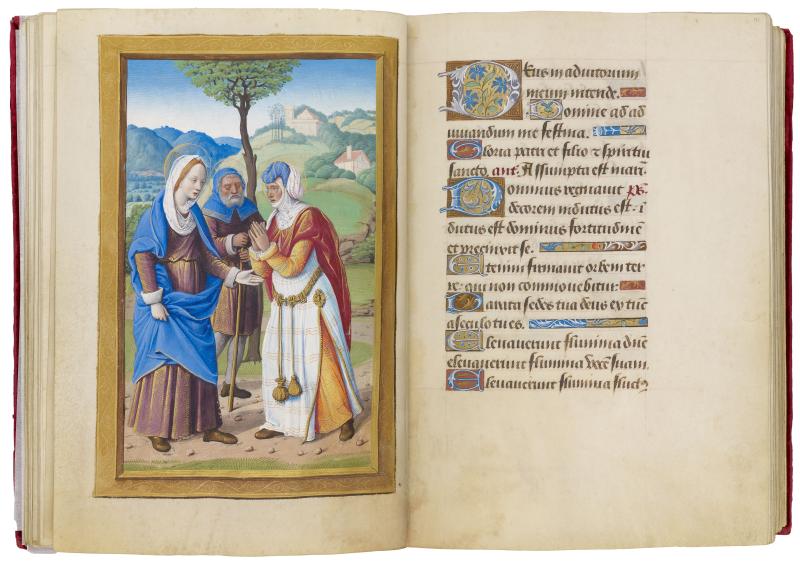 Deus in adiutorium
meum intende.
Domine ad ad
iuuandum me festina.
Gloria patri et filio & spiritui
sancto. ant. Assumpta est mari
Dominus regnauit ps.
decorem indutus est. i
dutus est dominus fortitudinē
et precinxit se.
Etenim firmauit orbem ter
re. qui non commouebitur.
Parata sedes tua deus ex tūc
a seculo tu es.
Eleuauerunt flumina dn̄e
eleuauerunt flumina vocē suam.
Eleuauerunt flumina fluct⁹